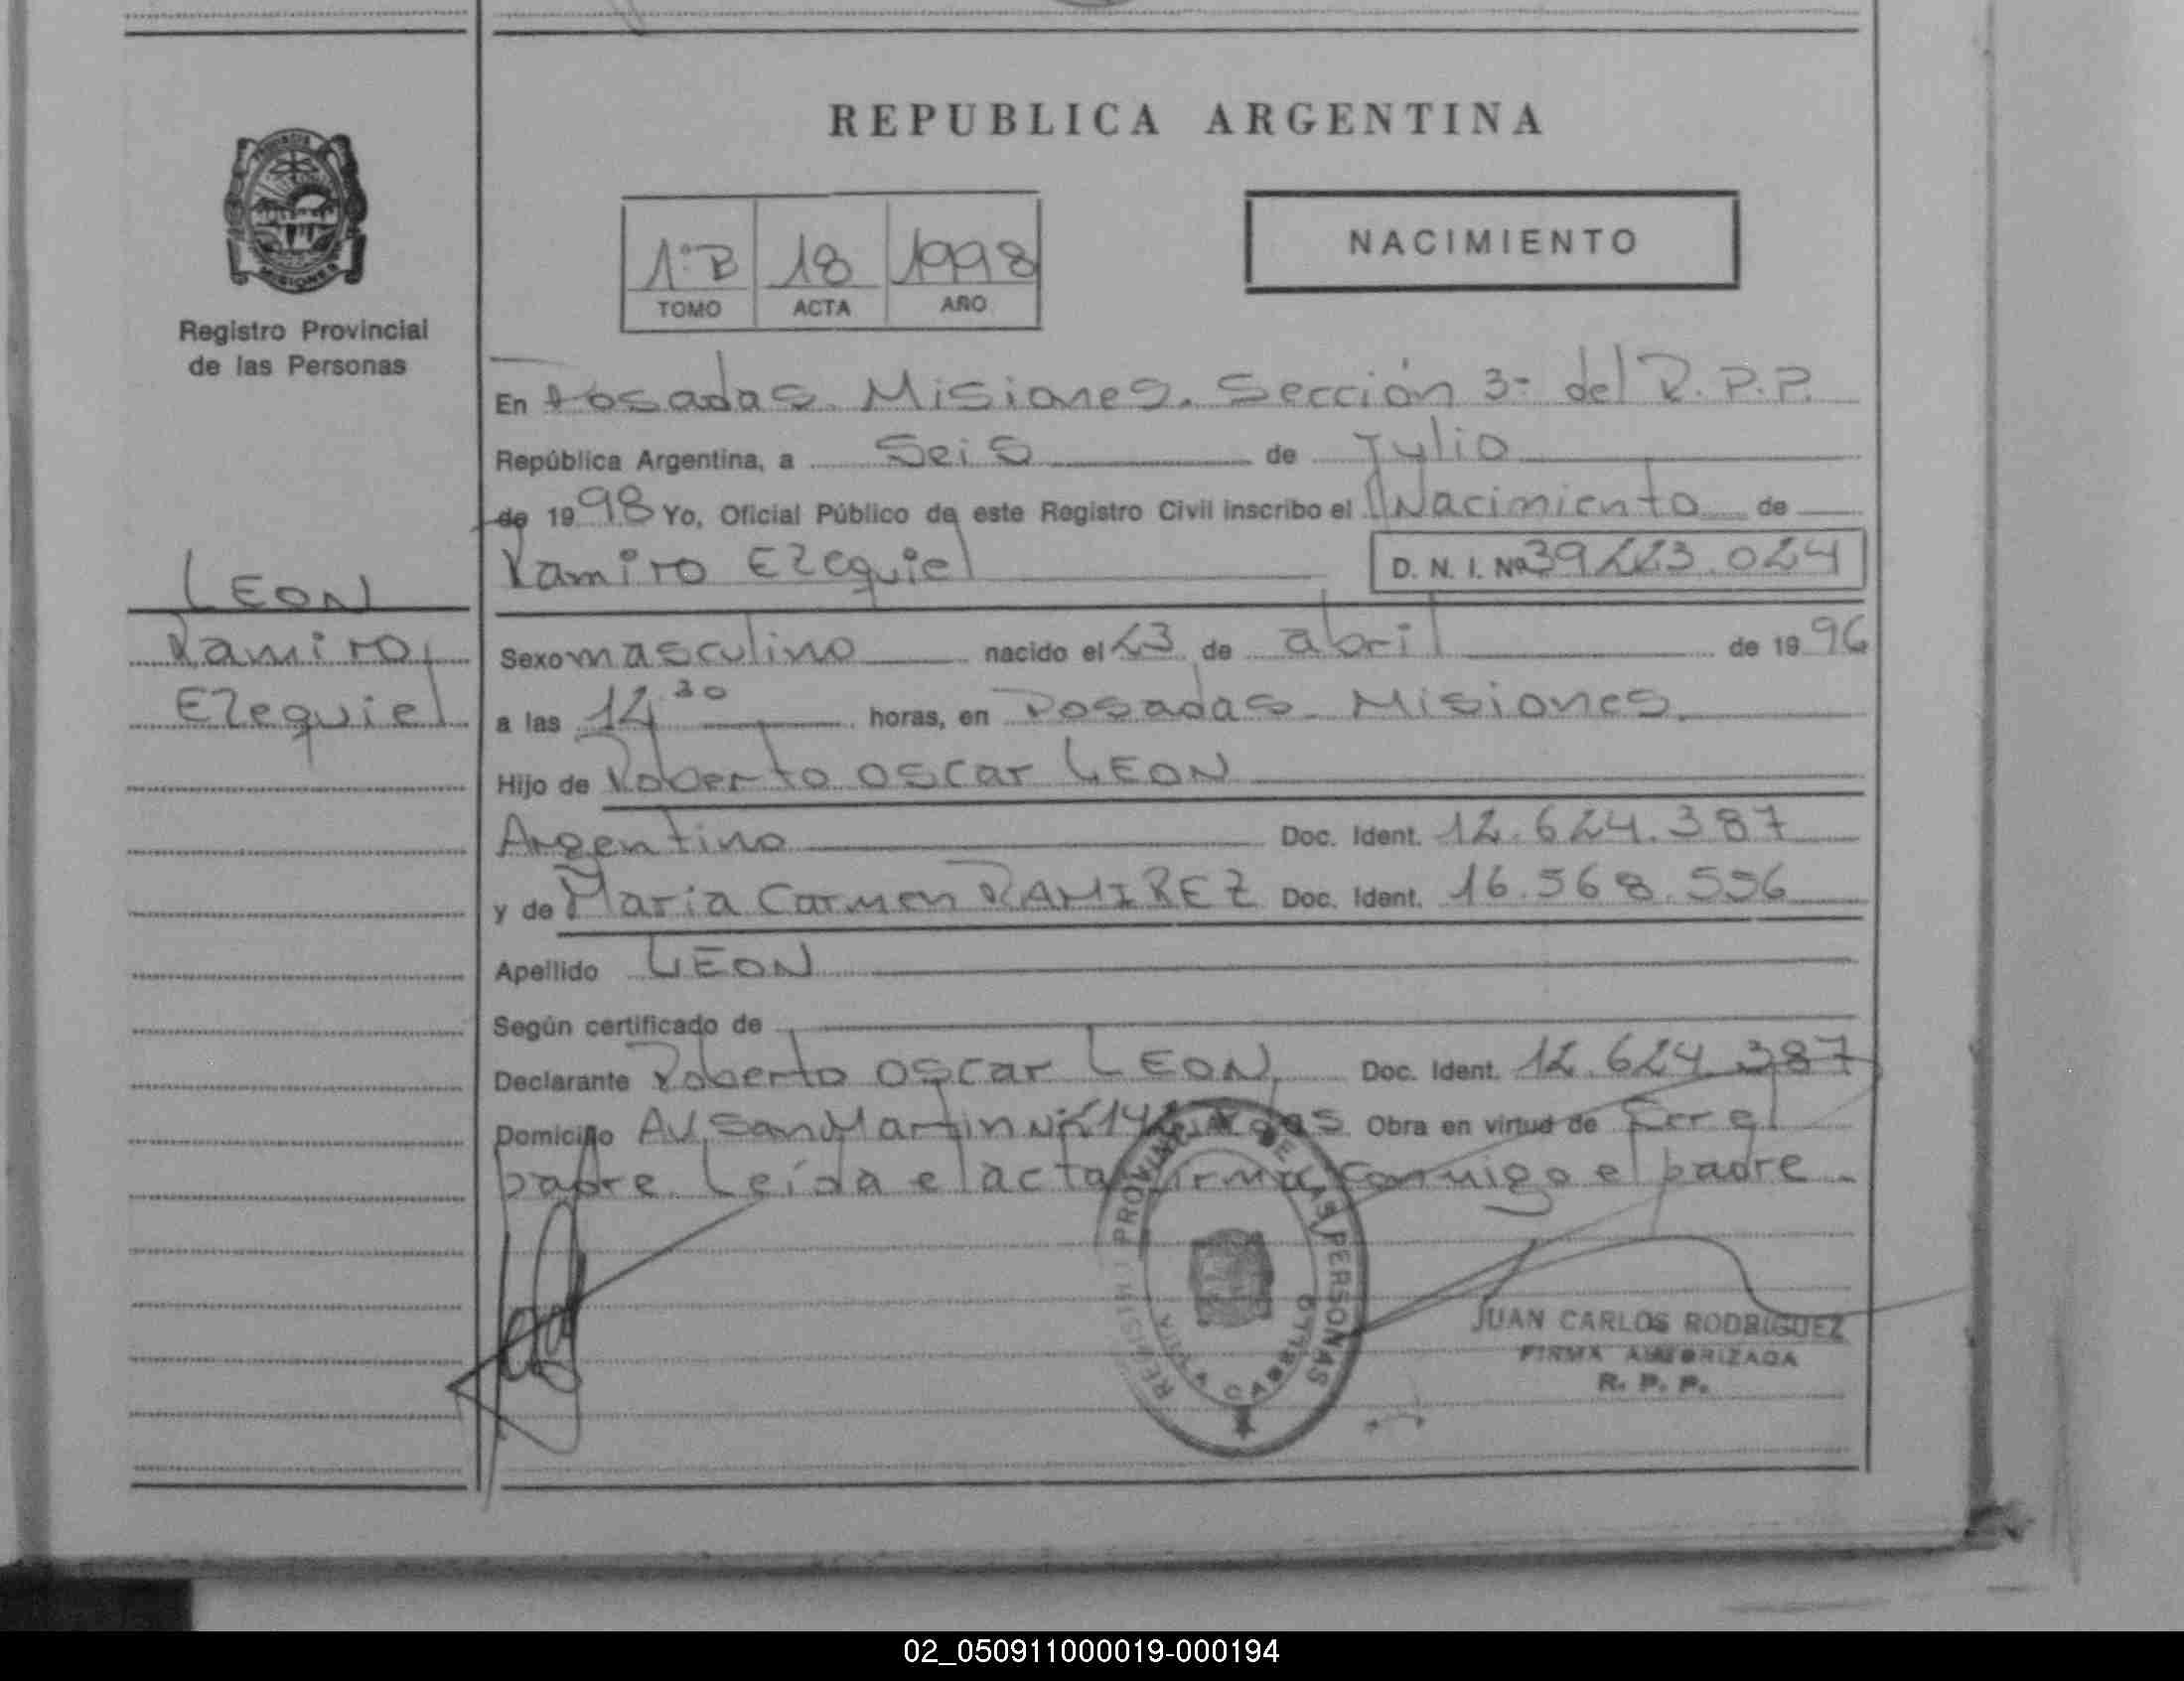 REPUBLICA ARGENTINA
PROVINCIA
MISIONES
Registro Provincial
de las Personas
1º B 18 1998
TOMO ACTA AÑO
NACIMIENTO
En Posadas Misiones. Sección 3ª del R.P.P.
República Argentina, a Seis de Julio
de 1998 Yo, Oficial Público de este Registro Civil inscribo el Nacimiento de
Ramiro Ezequiel D. N. I. Nº 39.223.024
LEON
Ramiro
Ezequiel
Sexo masculino nacido el 23 de abril de 1996
a las 14 30 horas, en Posadas Misiones.
Hijo de Roberto Oscar LEON
Argentino Doc. Ident. 12.624.387
y de Maria Carmen RAMIREZ Doc. Ident. 16.568.556
Apellido LEON
Según certificado de
Declarante Roberto Oscar LEON Doc. Ident. 12.624.387
Domicilio Av. San Martin Obra en virtud de Ser el
padre. Leída el acta firma conmigo el padre.
PROVINCIAL DE LAS PERSONAS
CABRILLO
JUAN CARLOS RODRIGUEZ
FIRMA AUTORIZADA
R. P. P.
02_050911000019-000194